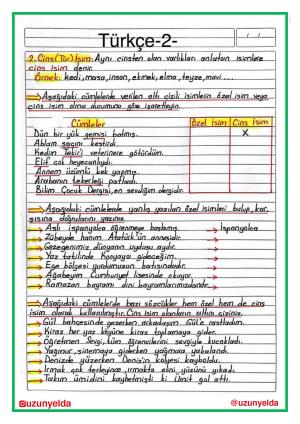 Türkçe-2-
2. Cins (Tür) İsim: Aynı cinsten olan varlıkları anlatan isimlere
cins isim denir.
Örnek: kedi, masa, insan, ekmek, elma, teyze, mavi...
Aşağıdaki cümlelerde verilen altı çizili isimlerin özel isim veya
cins isim olma durumuna göre işaretleyin.
Cümleler Özel İsim Cins İsim
Dün bir yük gemisi batmış. X
Ablam saçını kestirdi.
Kedim Tekir'i veterinere götürdüm.
Elif çok heyecanlıydı.
Annem üzümlü kek yapmış.
Arabanın tekerleği patladı.
Bilim Çocuk Dergisi, en sevdiğim dergidir.
Aşağıdaki cümlelerde yanlış yazılan özel isimleri bulup, kar-
şısına doğrularını yazınız.
Aslı ispanyolca öğrenmeye başlamış. İspanyolca
Zübeyde hanım Atatürk'ün annesidir.
Gezegenimiz dünyanın uydusu aydır.
Yaz tatilinde Konyaya gideceğim.
Ege bölgesi yurdumuzun batısındadır.
Ağabeyim Cumhuriyet lisesinde okuyor.
Ramazan bayramı dini bayramlarımızdandır.
Aşağıdaki cümlelerde bazı sözcükler hem özel hem de cins
isim olarak kullanılmıştır. Cins isim olanların altını çiziniz.
Gül bahçesinde gezerken arkadaşım Gül'e rastladım.
Kiraz her yaz köyüne kiraz toplamaya gider.
Öğretmen Sevgi, tüm öğrencilerini sevgiyle kucakladı.
Yağmur, sinemaya giderken yağmura yakalandı.
Denizde yüzerken Deniz'in kolyesi kayboldu.
Irmak çok terleyince, ırmakta elini, yüzünü yıkadı.
Takım ümidini kaybetmişti ki Ümit gol attı.
@uzunyelda @uzunyelda